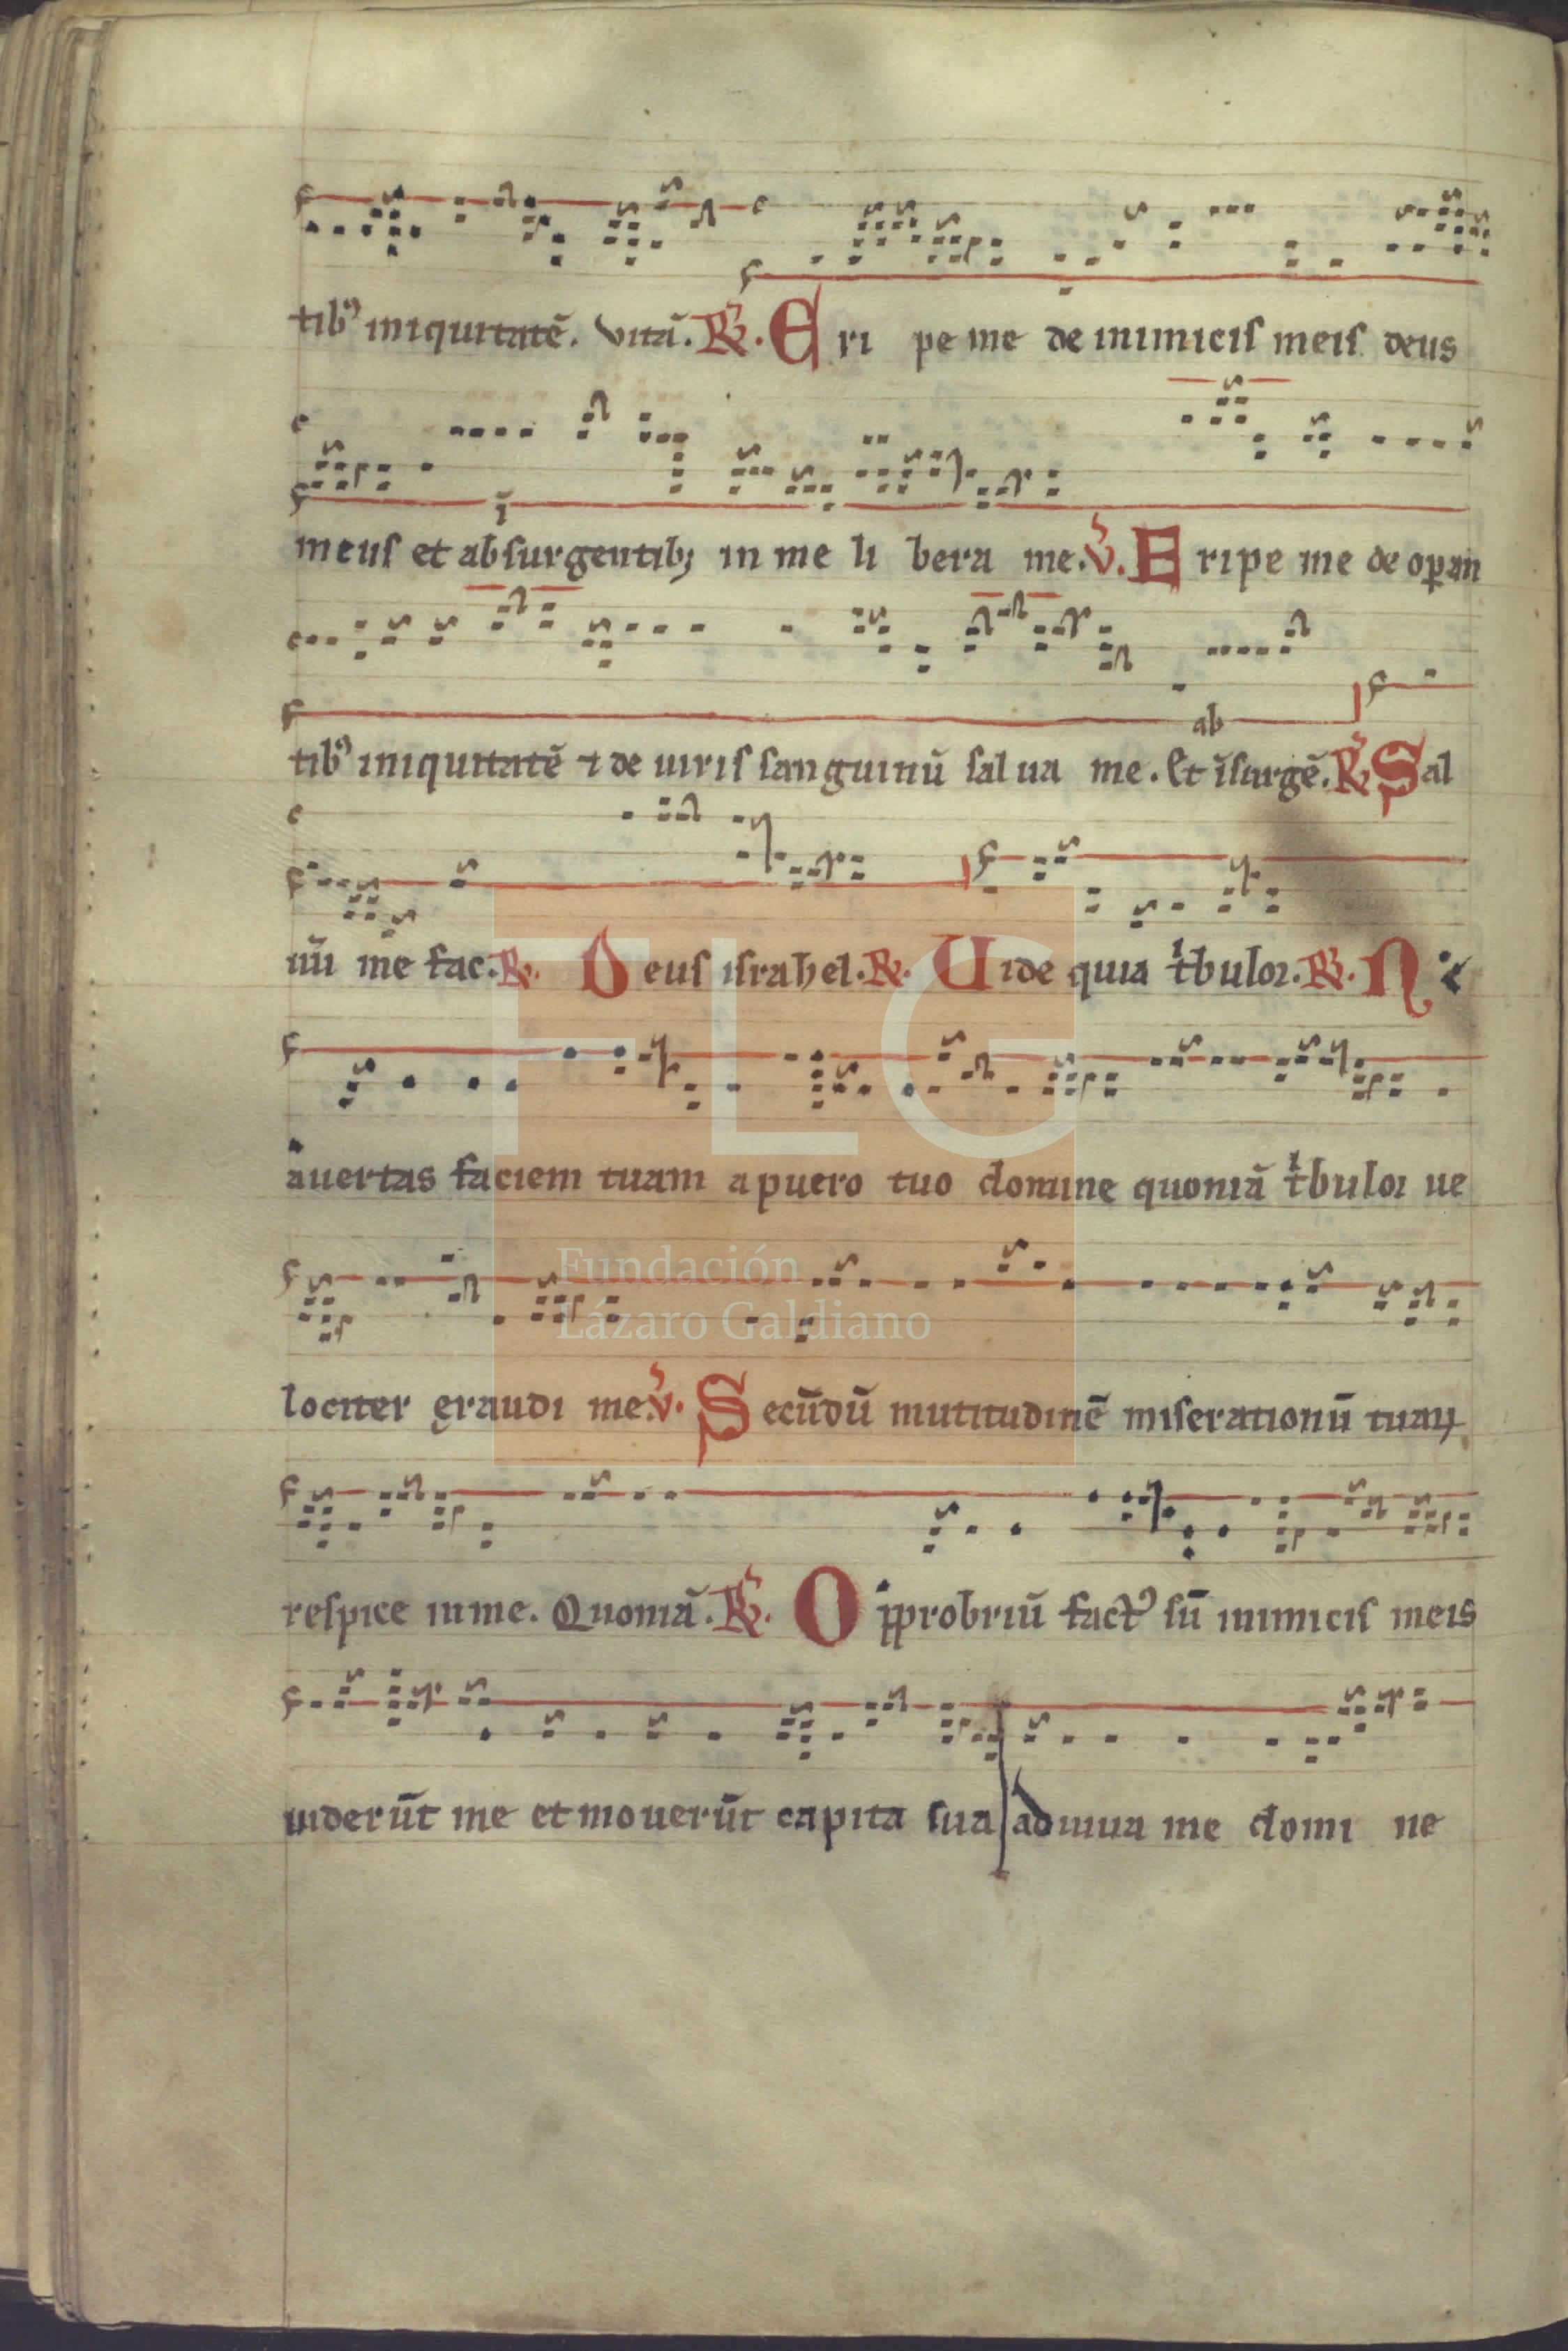 tibꝰ iniquitatē. vitā. ℟. Eri pe me de inimicis meis deus
meus et ab surgentibꝫ in me li bera me. ℣. Eripe me de oꝑan
tibꝰ iniquitatē ⁊ de uiris sanguinū sal ua me. Et ab īsurgē. ℟ Sal
uū me fac. ℟. Deus israhel. ℟. Uide quia tⁱbulor. ℟. Ne
auertas faciem tuam a puero tuo domine quoniā tⁱbulor ue
lociter exaudi me ℣. Secūdū mutitudinē miserationū tuaꝝ
respice in me. Quoniā. ℟. Opprobriū factꝰ sū inimicis meis
uiderūt me et mouerūt capita sua adiuua me domi ne
FLG
Fundación
Lázaro Galdiano